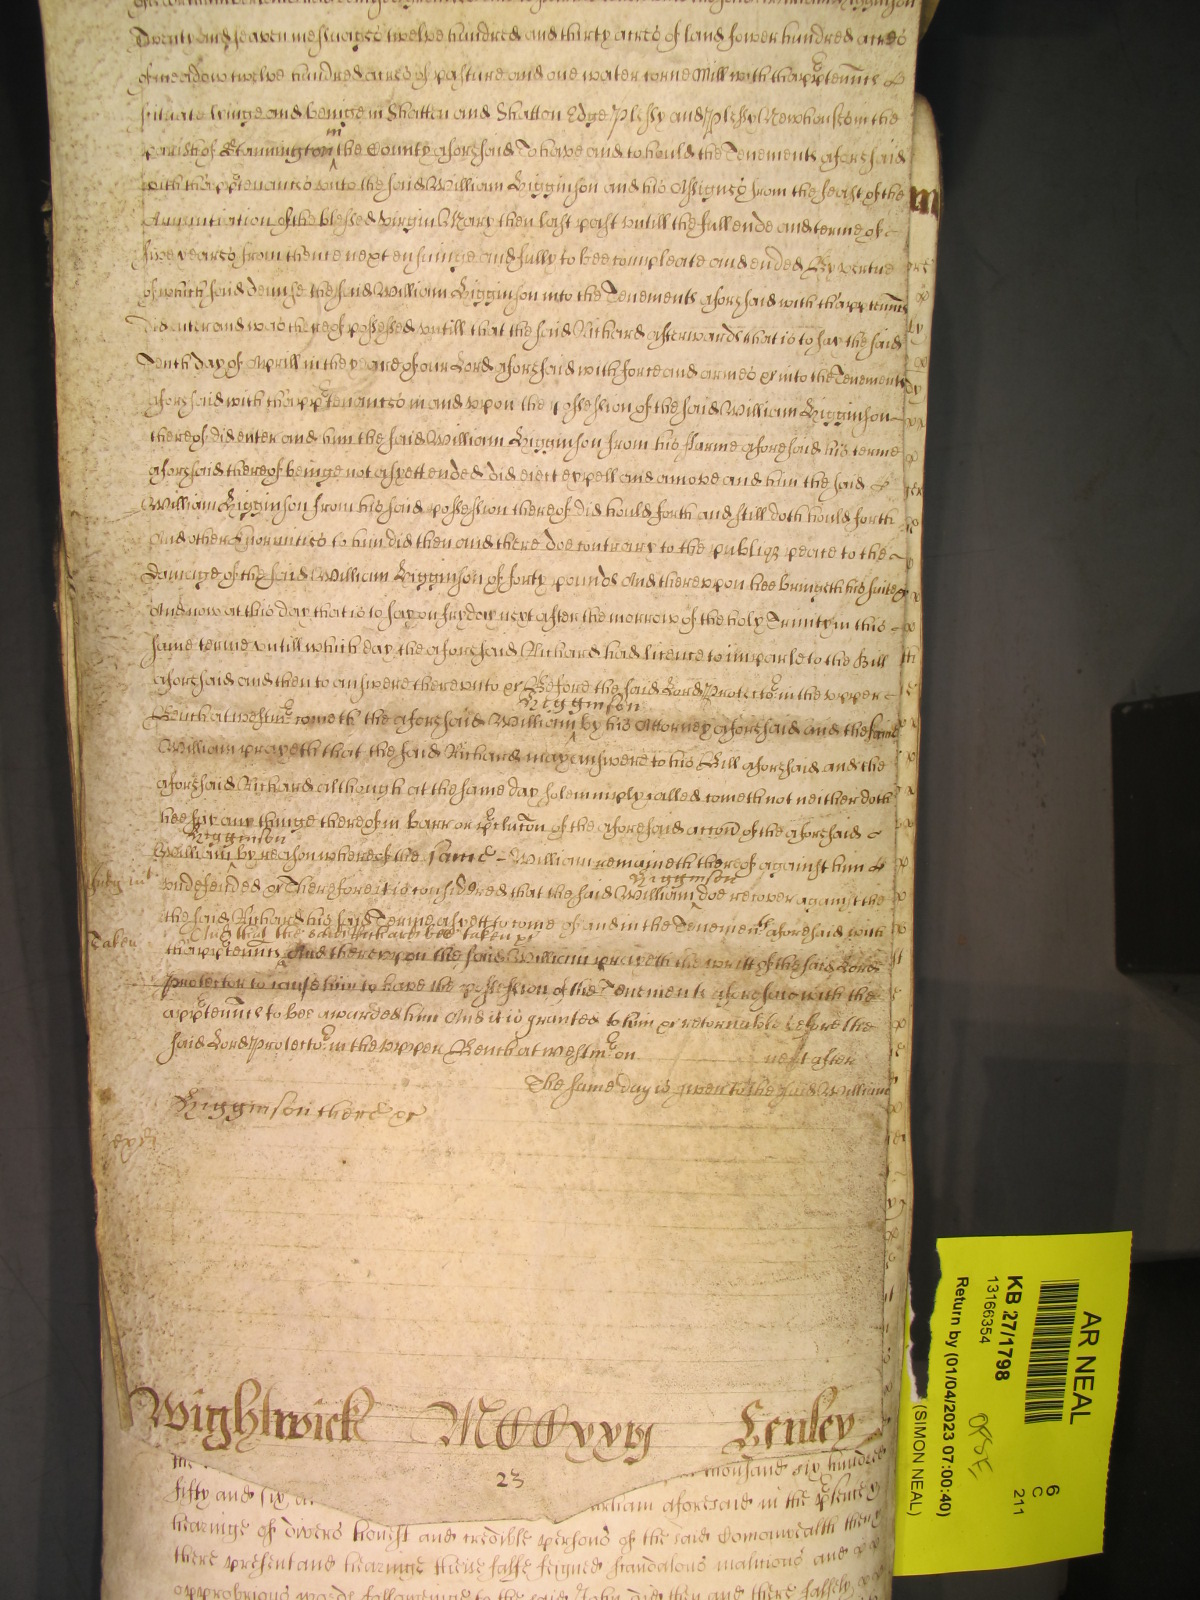 Twenty and seaven messuages twelve hundred and thirty acres of land fower hundred acres
of meadow twelve hundred acres of pasture and one water corne Mill with thapptenncs
situate lyinge and beinge in Shotton and Shotton Edge Plessy and Plessy Newhouses in the
parish of Stannington in the County aforesaid To have and to hould the Tenements aforesaid
with thapptenances unto the said William Higginson and his Assignes from the feast of the
Annunciation of the blessed virgin Mary then last past untill the full ende and terme of
five yeares from thence next ensuinge and fully to bee compleate and ended By vertue
of which said demise the said William Higginson into the Tenements aforesaid with thapptenncs
did enter and was thereof possessed untill that the said Richard afterwards that is to say the said
Tenth day of Aprill in the yeare of our Lord aforesaid with force and armes &c into the Tenements
aforesaid with thapptenances in and upon the possession of the said William Higginson
thereof did enter and him the said William Higginson from his Farme aforesaid his terme
aforesaid thereof beinge not as yett ended did eiect expell and amove and him the said
William Higginson from his said possession thereof did hould forth and still doth hould forth
And other Enormities to him did then and there doe contrary to the publiq peace to the
damage of the said William Higginson of forty pounds And thereupon hee bringeth his suite &c
And now at this day that is to say on fryday next after the morrow of the holy Trinity in this
same terme untill which day the aforesaid Richard had licence to imparle to the Bill
aforesaid and then to answere thereunto &c Before the said Lord Protector in the upper
Bench at Westmr cometh the aforesaid William Higginson by his Attorney aforesaid and the same
William prayeth that the said Richard may answere to his Bill aforesaid and the
aforesaid Richard although at the same day solemnply called cometh not neither doth
hee say any thinge thereof in barr or preclucon of the aforesaid accon of the aforesaid
William Higginson by reason whereof the same William remaineth thereof against him
Judgmt
undefended &c Therefore it is considered that the said William Higginson doe recover against the
the said Richard his said Terme as yett to come of and in the Tenements aforesaid with
Taken
And that the said Richard bee taken &c
thapptenncs And thereupon the said William prayeth the writt of the said Lord
Protector to cause him to have the possession of the Tenements aforesaid with the
apptenncs to bee awarded him And it is granted to him &c returnable before the
said Lord Protector in the upper Bench at Westmr on next after
The same day is given to the said William
Higginson there &c
Wightwick MCCCCxxvj Henley
23
thousand six hundred
fifty and six aforesaid in the psence &
hearinge of divers honest and credible persons of the said Comonwealth then
there present and hearinge theise false feigned scandalous malitious and
opprobrious words followeinge to the said John did then and there falsely
AR NEAL
KB 27/1798
13166354
Return by (01/04/2023 07:00:40)
(SIMON NEAL)
6
C
211